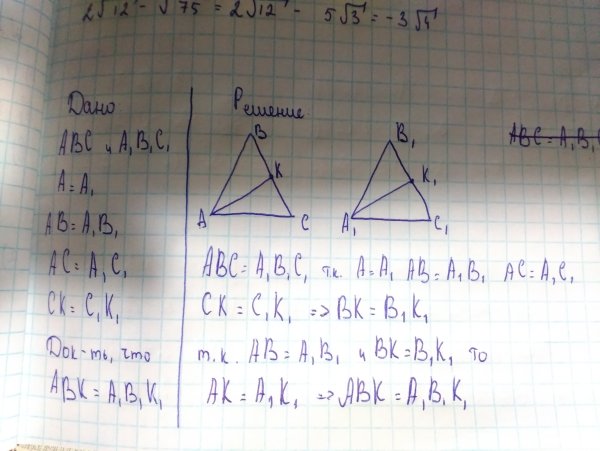 2√12 - √75 = 2√12 - 5√3 = -3√4
Дано
ABC и A₁B₁C₁
A = A₁
AB = A₁B₁
AC = A₁C₁
CK = C₁K₁
Док-ть, что
ABK = A₁B₁K₁
Решение
B
K
A
C
B₁
K₁
A₁
C₁
ABC = A₁B₁C₁ т.к. A = A₁ AB = A₁B₁ AC = A₁C₁
CK = C₁K₁ => BK = B₁K₁
т.к. AB = A₁B₁ и BK = B₁K₁ то
AK = A₁K₁ => ABK = A₁B₁K₁